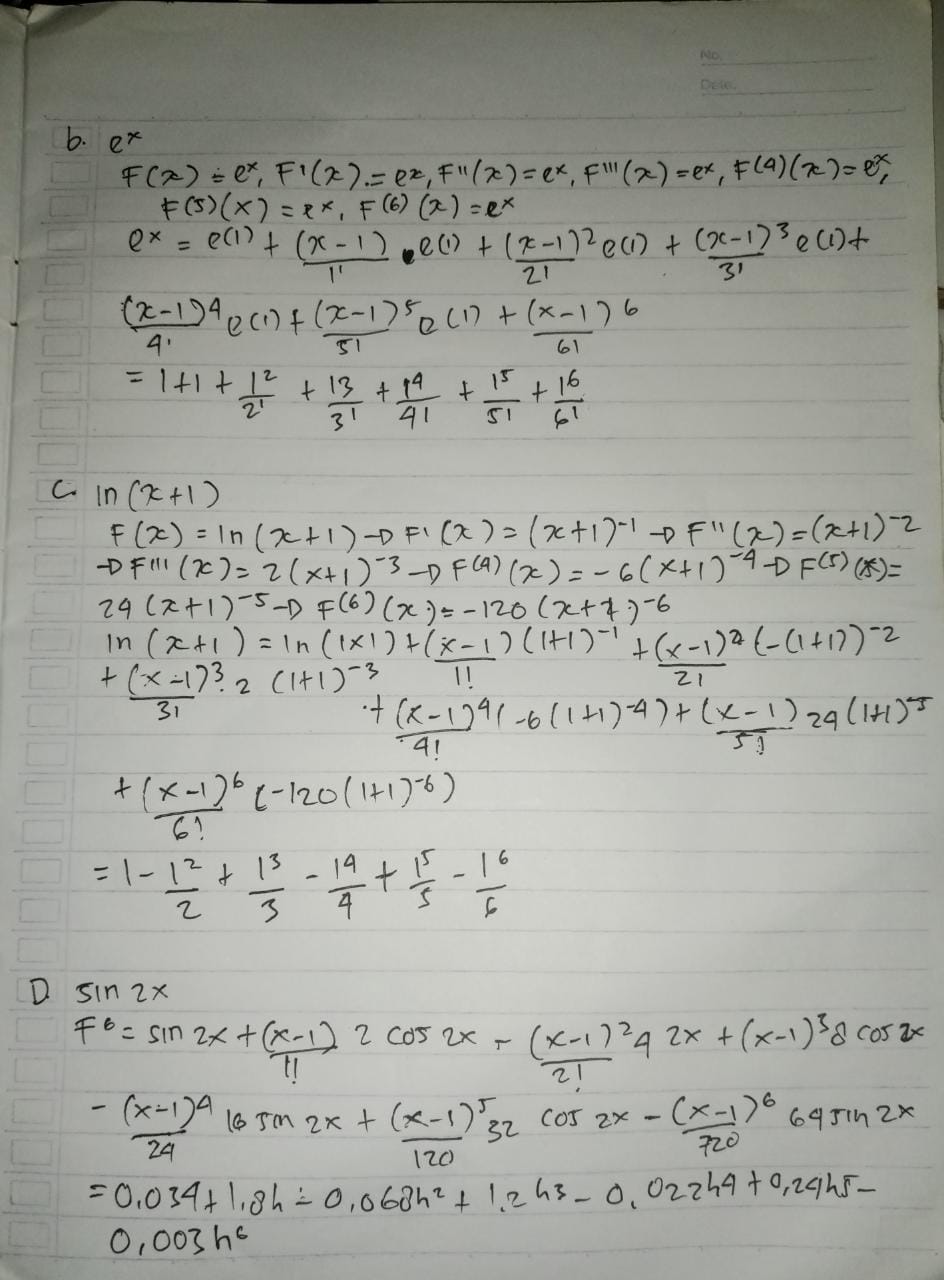 No.
Date.
b. e^x
F(x) = e^x, F'(x) = e^x, F''(x) = e^x, F'''(x) = e^x, F(4)(x) = e^x,
F(5)(x) = e^x, F(6)(x) = e^x
e^x = e(1) + (x-1)/1! . e(1) + (x-1)^2/2! e(1) + (x-1)^3/3! e(1) +
(x-1)^4/4! e(1) + (x-1)^5/5! e(1) + (x-1)^6/6!
= 1+1 + 1^2/2! + 1^3/3! + 1^4/4! + 1^5/5! + 1^6/6!
C. ln (x+1)
F(x) = ln (x+1) → F'(x) = (x+1)^-1 → F''(x) = (x+1)^-2
→ F'''(x) = 2(x+1)^-3 → F(4)(x) = -6(x+1)^-4 → F(5)(x) =
24 (x+1)^-5 → F(6)(x) = -120 (x+1)^-6
ln (x+1) = ln (1x1) + (x-1)/1! (1+1)^-1 + (x-1)^2/2! (-(1+1))^-2
+ (x-1)^3/3! 2 (1+1)^-3
+ (x-1)^4/4! (-6(1+1)^-4) + (x-1)/5! 24 (1+1)^-5
+ (x-1)^6/6! (-120(1+1)^-6)
= 1 - 1^2/2 + 1^3/3 - 1^4/4 + 1^5/5 - 1^6/6
D. sin 2x
F^6 = sin 2x + (x-1)/1! 2 cos 2x - (x-1)^2/2! 4 2x + (x-1)^3 8 cos 2x
- (x-1)^4/24 16 sin 2x + (x-1)^5/120 32 cos 2x - (x-1)^6/720 64 sin 2x
= 0,034 + 1,8h - 0,068h^2 + 1,2h^3 - 0,022h^4 + 0,24h^5 -
0,003h^6